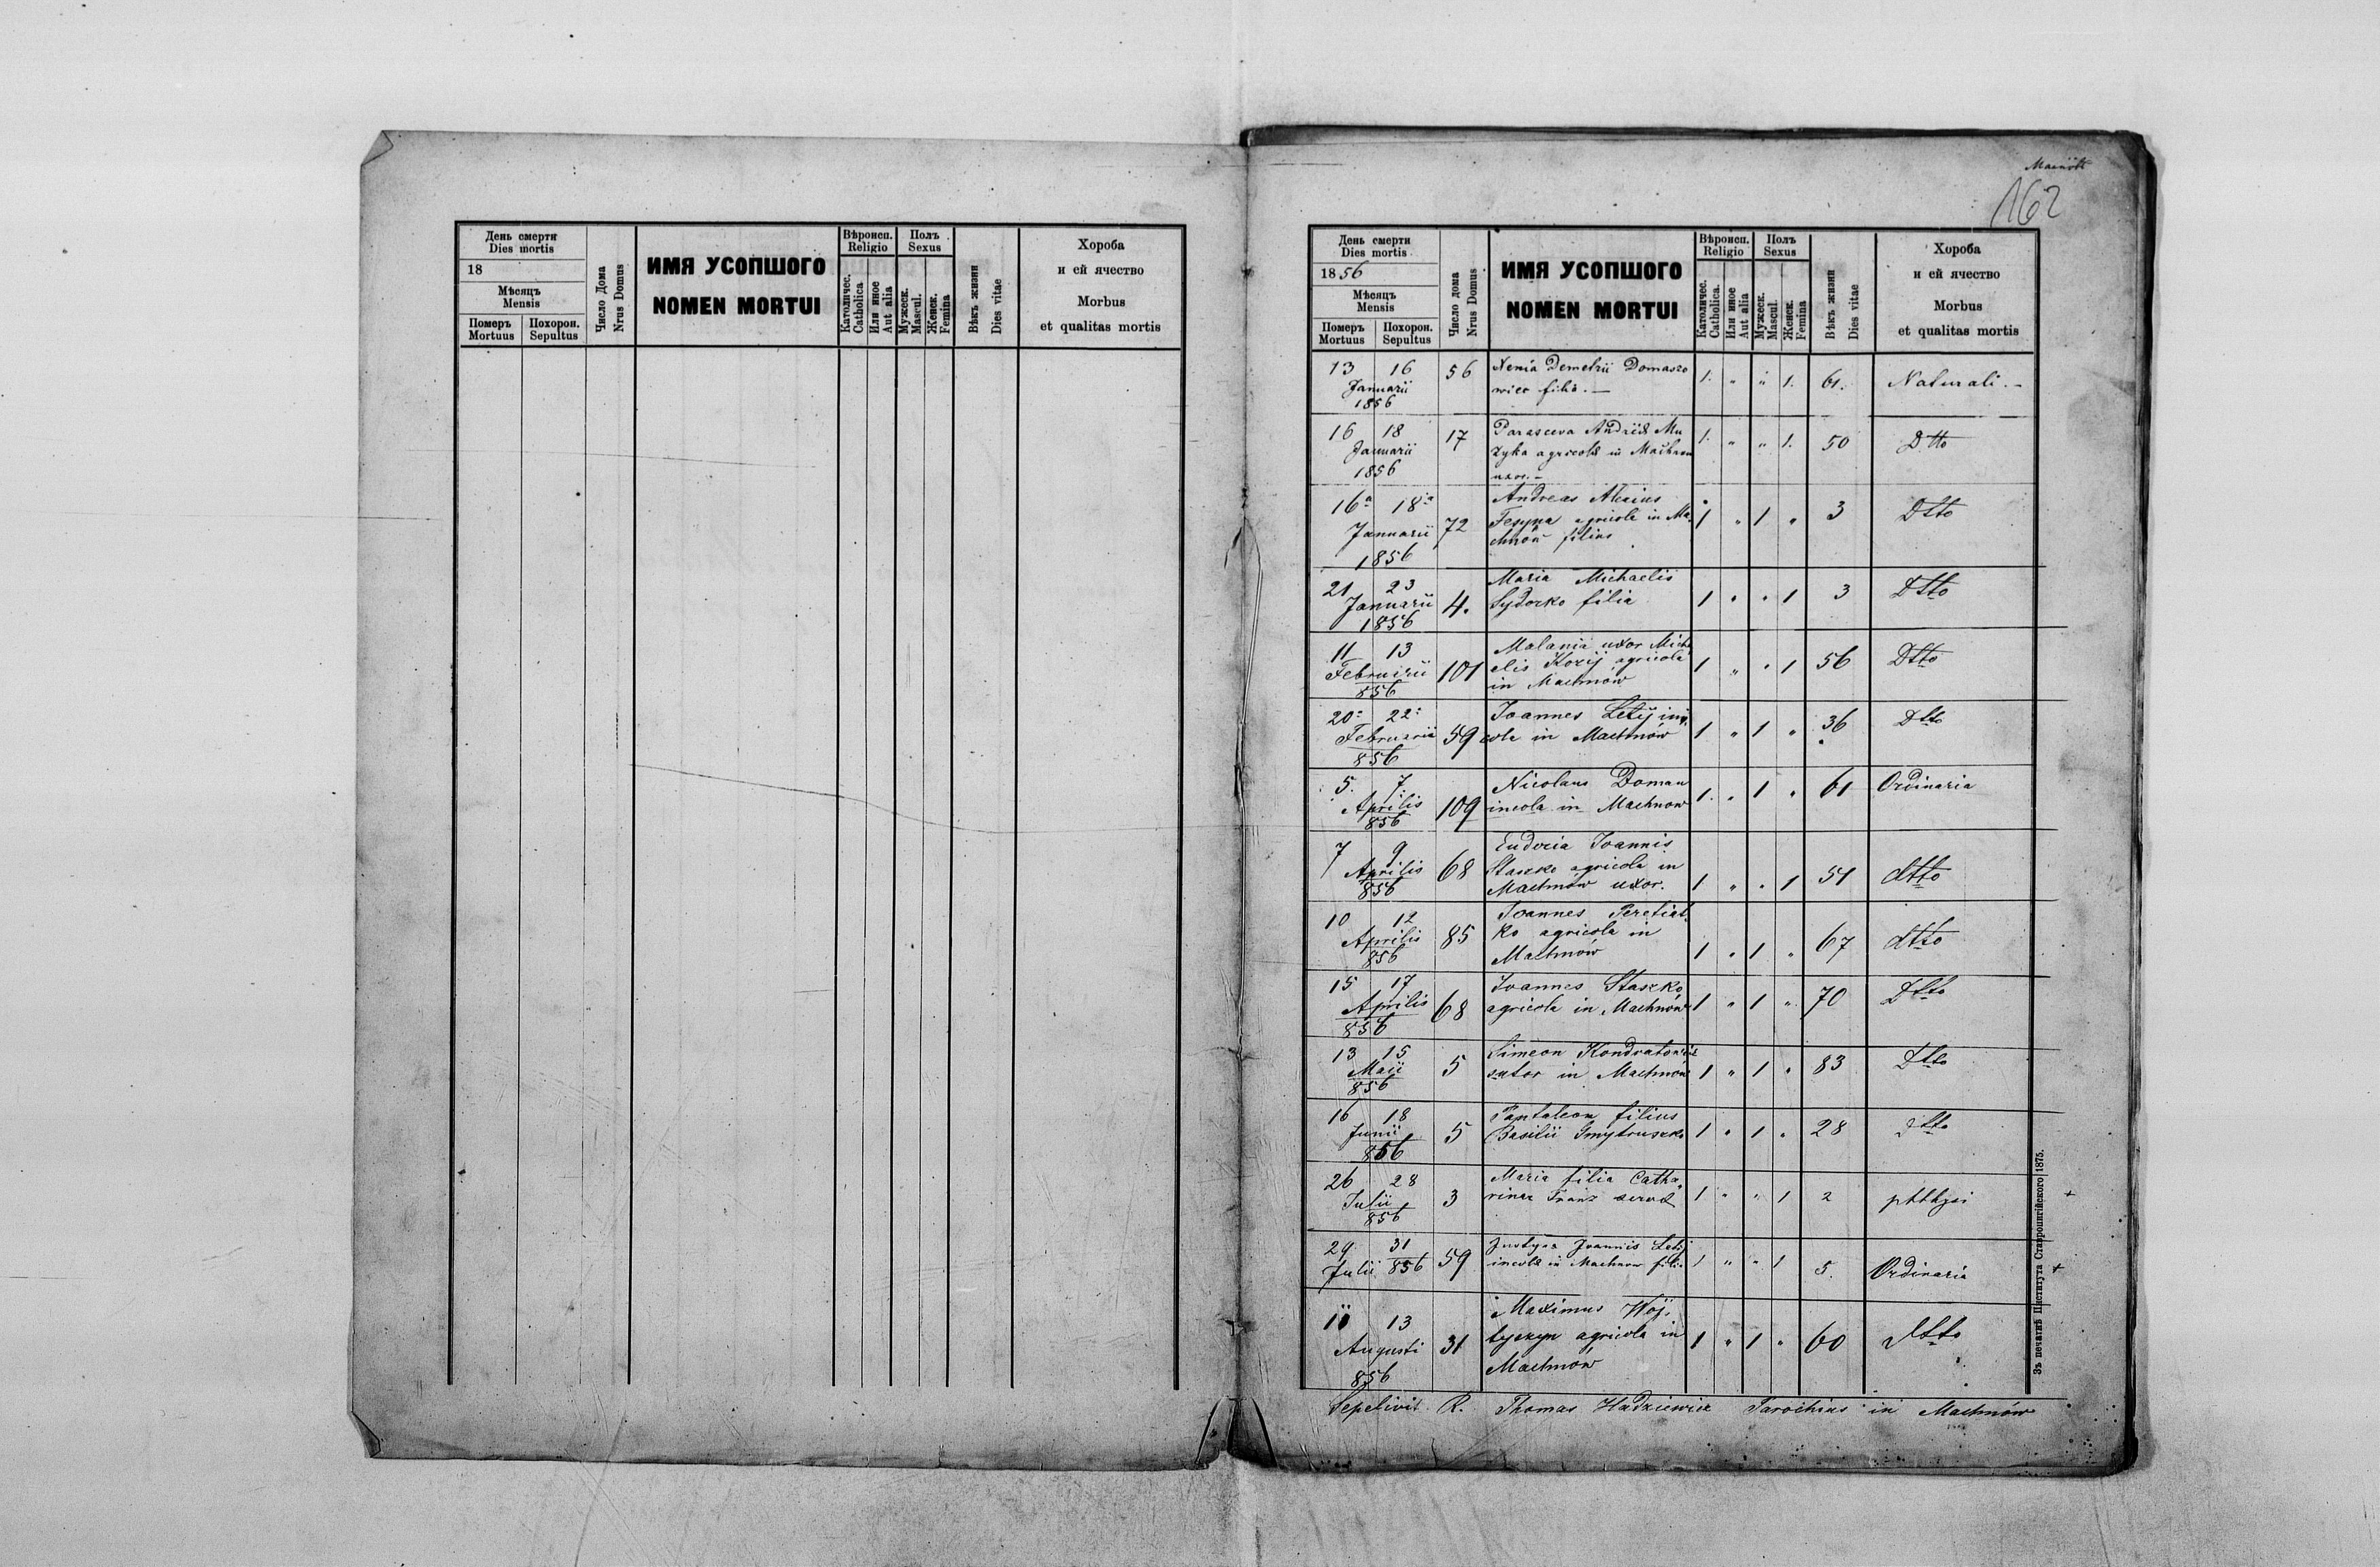 День смерти
Dies mortis
18
Мѣсяцъ
Mensis
Померъ
Mortuus
Похорон.
Sepultus
Число Дома
Nrus Domus
ИМЯ УСОПШОГО
NOMEN MORTUI
Вѣроисп.
Religio
Католичес.
Catholica
Или иное
Aut alia
Полъ
Sexus
Мужеск.
Mascul.
Женск.
Femina
Вѣкъ жизни
Dies vitae
Хороба
и ей ячество
Morbus
et qualitas mortis
162
День смерти
Dies mortis
1856
Мѣсяцъ
Mensis
Померъ
Mortuus
Похорон.
Sepultus
Число дома
Nrus Domus
ИМЯ УСОПШОГО
NOMEN MORTUI
Вѣроисп.
Religio
Католичес.
Catholica.
Или иное
Aut alia
Полъ
Sexus
Мужеск.
Mascul.
Женск.
Femina
Вѣкъ жизни
Dies vitae
Хороба
и ей ячество
Morbus
et qualitas mortis
13 16 56 Xenia Demetrii Domasze 1. " " 1. 61. Naturali. -
Januarii wicz filia. —
1856
16 18 17 Parasceva Andreä Mu 1. " " 1. 50 Dtto
Januarii zyka agricolä in Machnow
1856 uxor. -
16a 18a 72 Andreas Alexius 1 " 1 " 3 Dtto
Januarii agricola in Ma-
1856 chnów filius
21 23 4. Maria Michaelis 1 " " 1 3 Dtto
Januarii Sydorko filia
1856
11 13 101 Malania uxor Micha 1 " " 1 56 Dtto
Februarii elis Kozij agricola
856 in Machnów
20 22 59 Joannes Letij 1 " 1 " 36 Dtto
Februarii cola in Machnów
856
5. 7. 109 Nicolaus Doman 1. " 1 " 61 Ordinaria
Aprilis incola in Machnow
856
7 9 68 Eudoxia Joannis 1 " " 1 51 dtto
Aprilis Staszko agricola in
856 Machnów uxor.
10 12 85 Joannes Peretiat- 1 " 1 " 67 dtto
Aprilis ko agricola in
856 Machnów
15 17 68 Joannes Staszko 1 " 1 " 70 Dtto
Aprilis agricola in Machnów
856
13 15 5 Simeon Kondratowicz 1 " 1 " 83 Dtto
Maii sutor in Machnow
856
16 18 5 Pantaleon filius 1 " 1 " 28 dtto
Junii Basilii Gmytruszko
856
26 28 3 Maria filia Catha- 1 " " 1 2 phthysi
Julii rinae
856
29 31 59 Justyna Joannis Letij 1 " " 1 5. Ordinaria
Julii 856 incolä in Machnow filia
11 13 31 Maximus Woj- 1 " 1 " 60 dtto
Augusti tyszyn agricola in
856 Machnów
Sepelivit R. Thomas Hadziewicz Parochus in Machnów
Зъ печатнѣ Института Ставропигійского 1875.